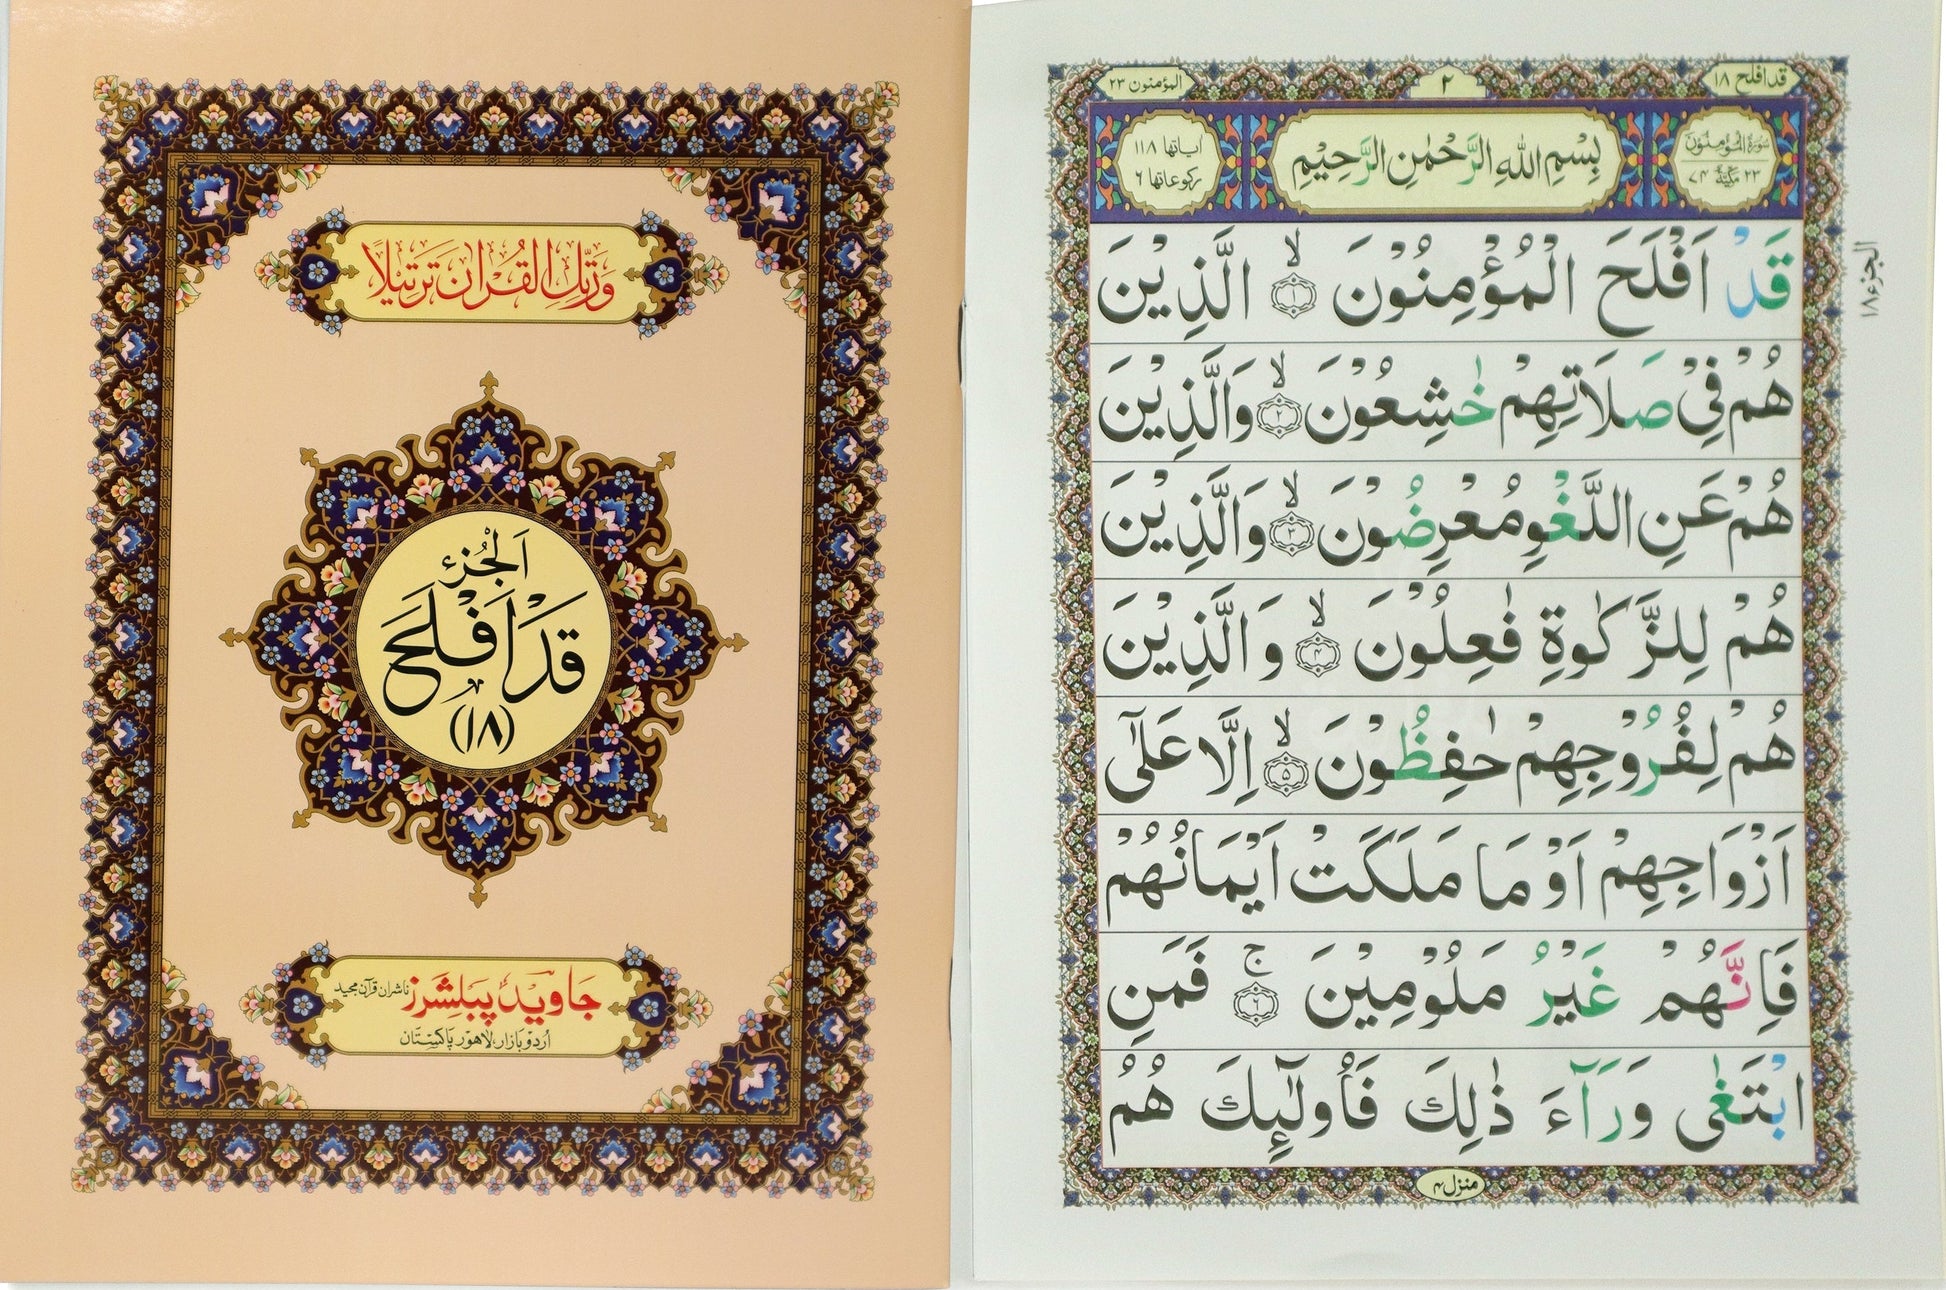 وَرَتِّلِ الْقُرْاٰنَ تَرْتِيْلًا
اَلْجُزْءُ
قَدْ اَفْلَحَ
(١٨)
جَاوِيد پبلشرز ناشران قرآن مجید
اُردو بازار، لاہور پاکستان
قد افلح ١٨
٢
المؤمنون ٢٣
سُوْرَةُ الْمُؤْمِنُوْنَ
٢٣ مَكِّيَّةٌ ٧٤
بِسْمِ اللّٰهِ الرَّحْمٰنِ الرَّحِيْمِ
اٰیاتها ١١٨
رکوعاتها ٦
قَدْ اَفْلَحَ الْمُؤْمِنُوْنَ ۙ﴿١﴾ الَّذِيْنَ
هُمْ فِيْ صَلَاتِهِمْ خٰشِعُوْنَ ۙ﴿٢﴾ وَالَّذِيْنَ
هُمْ عَنِ اللَّغْوِ مُعْرِضُوْنَ ۙ﴿٣﴾ وَالَّذِيْنَ
هُمْ لِلزَّكٰوةِ فٰعِلُوْنَ ۙ﴿٤﴾ وَالَّذِيْنَ
هُمْ لِفُرُوْجِهِمْ حٰفِظُوْنَ ۙ﴿٥﴾ اِلَّا عَلٰٓى
اَزْوَاجِهِمْ اَوْ مَا مَلَكَتْ اَيْمَانُهُمْ
فَاِنَّهُمْ غَيْرُ مَلُوْمِيْنَ ۚ﴿٦﴾ فَمَنِ
ابْتَغٰى وَرَآءَ ذٰلِكَ فَاُولٰٓئِكَ هُمُ
الجزء ١٨
منزل ۴